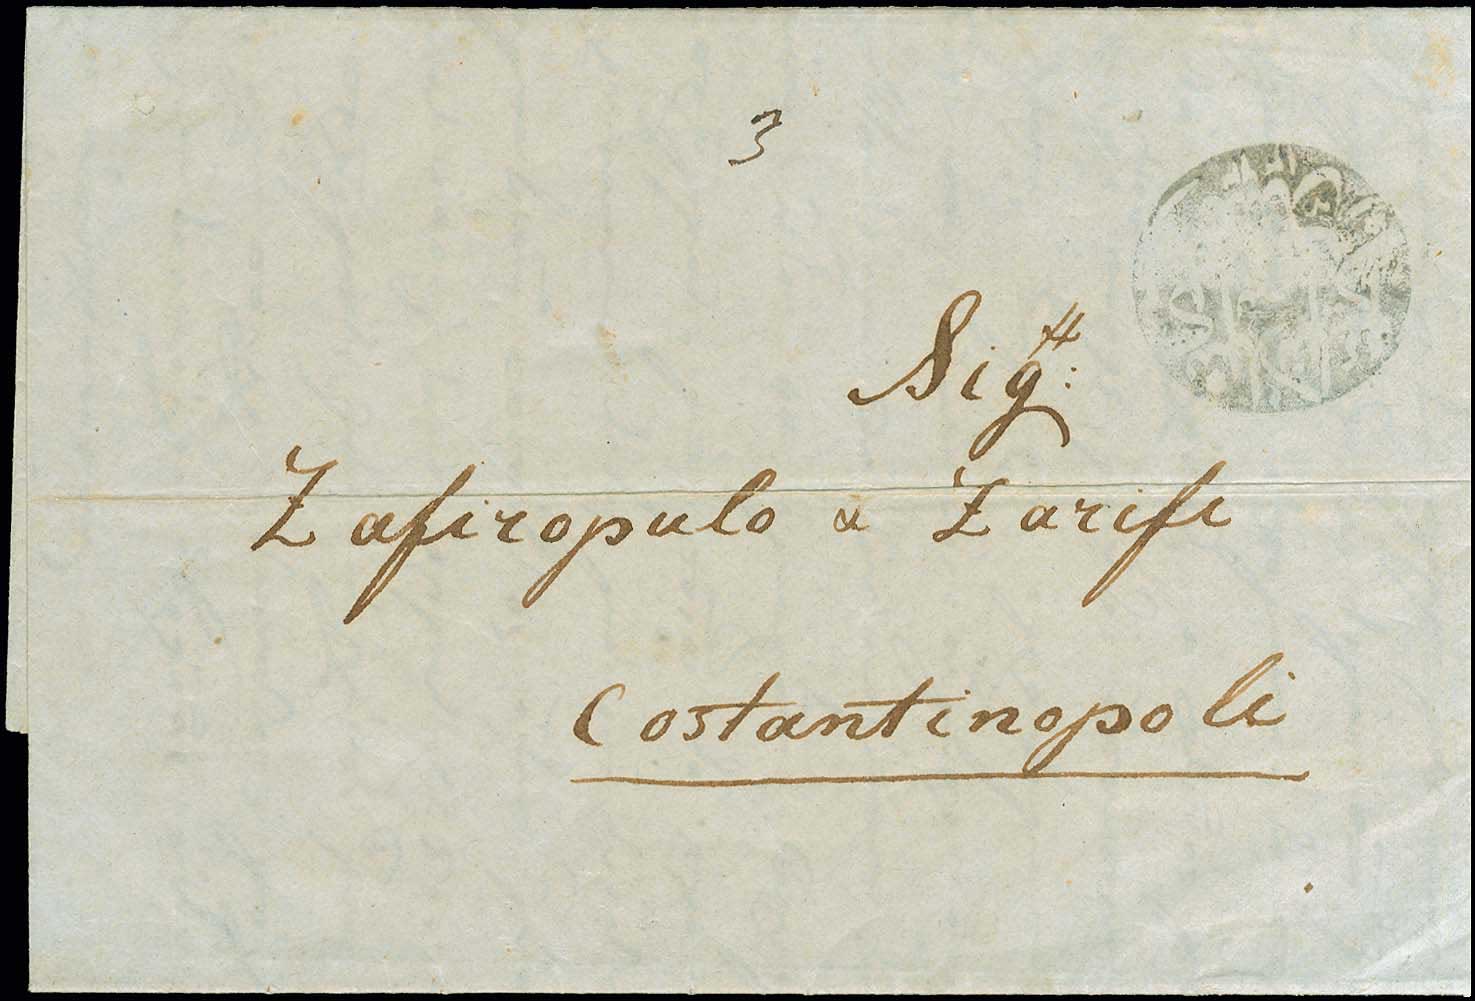 3
Sig:
Zafiropulo & Zarifi
Costantinopoli